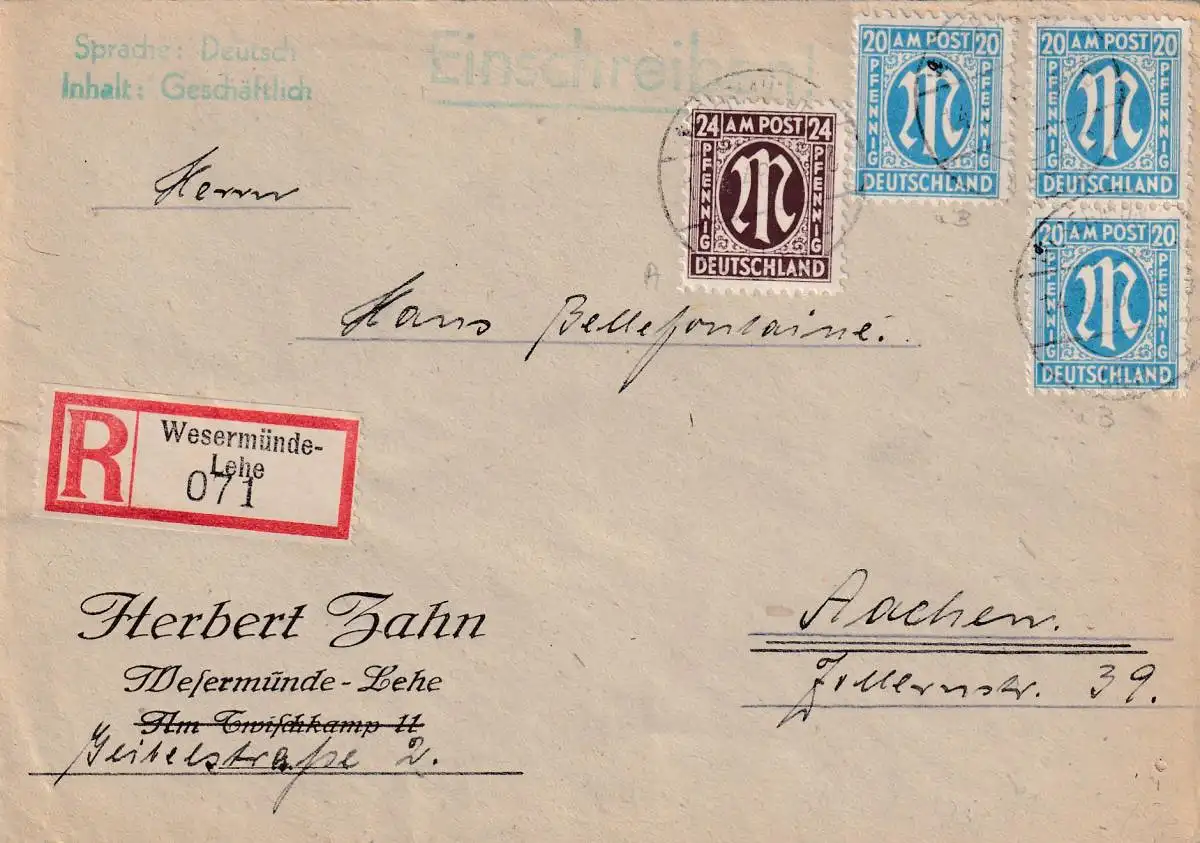 Sprache: Deutsch
Inhalt: Geschäftlich
Einschreiben!
20 AM POST 20
PFENNIG PFENNIG
DEUTSCHLAND
20 AM POST 20
PFENNIG PFENNIG
DEUTSCHLAND
24 AM POST 24
PFENNIG PFENNIG
DEUTSCHLAND
20 AM POST 20
PFENNIG PFENNIG
DEUTSCHLAND
Herrn
A
B
Hans Bellefontaine.
B
R
Wesermünde-
Lehe
071
Herbert Zahn
Wesermünde-Lehe
Am Twischkamp 11
Geibelstraße 2.
Aachen.
Zollernstr. 39.